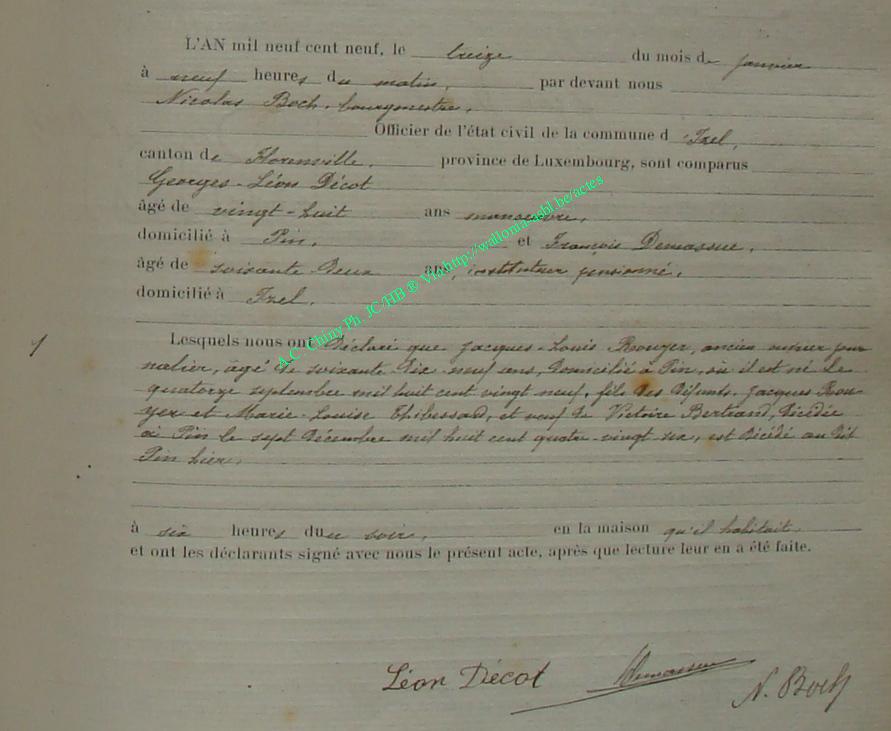 L'AN mil neuf cent neuf, le treize du mois de janvier
à neuf heures du matin, par devant nous
Nicolas Boch, bourgmestre,
Officier de l'état civil de la commune d'Izel,
canton de Florenville, province de Luxembourg, sont comparus
Georges-Léon Décot
âgé de vingt-huit ans manoeuvre,
domicilié à Pin, et François Demasse,
âgé de soixante deux ans, instituteur pensionné,
domicilié à Izel,
1 Lesquels nous ont déclaré que Jacques-Louis Rouyer, ancien ouvrier jour
nalier, âgé de soixante dix-neuf ans, domicilié à Pin, où il est né le
quatorze septembre mil huit cent vingt neuf, fils des défunts Jacques Rou-
yer et Marie-Louise Thibessard, et veuf de Victoire Bertrand, décédée
à Pin le sept décembre mil huit cent quatre-vingt six, est décédé au dit
Pin hier,
à six heures du soir, en la maison qu'il habitait
et ont les déclarants signé avec nous le présent acte, après que lecture leur en a été faite.
Léon Décot N. Boch
A.C. Chiny Ph JC HB ® Via http://wallonia-asbl.be/actes